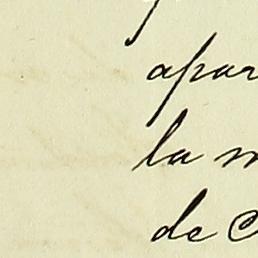 apar
la m
de C